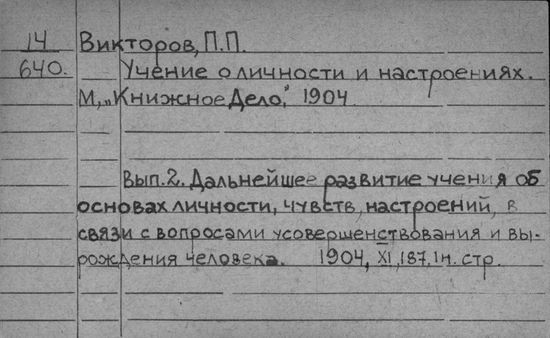 14 Викторов, П.П.
640. Учение о личности и настроениях.
М., „Книжное Дело", 1904
Вып.2. Дальнейшее развитие учения об
основах личности, чувств, настроений, в
связи с вопросами усовершенствования и вы-
рождения человека. 1904, XI, 187. 1 н. стр.